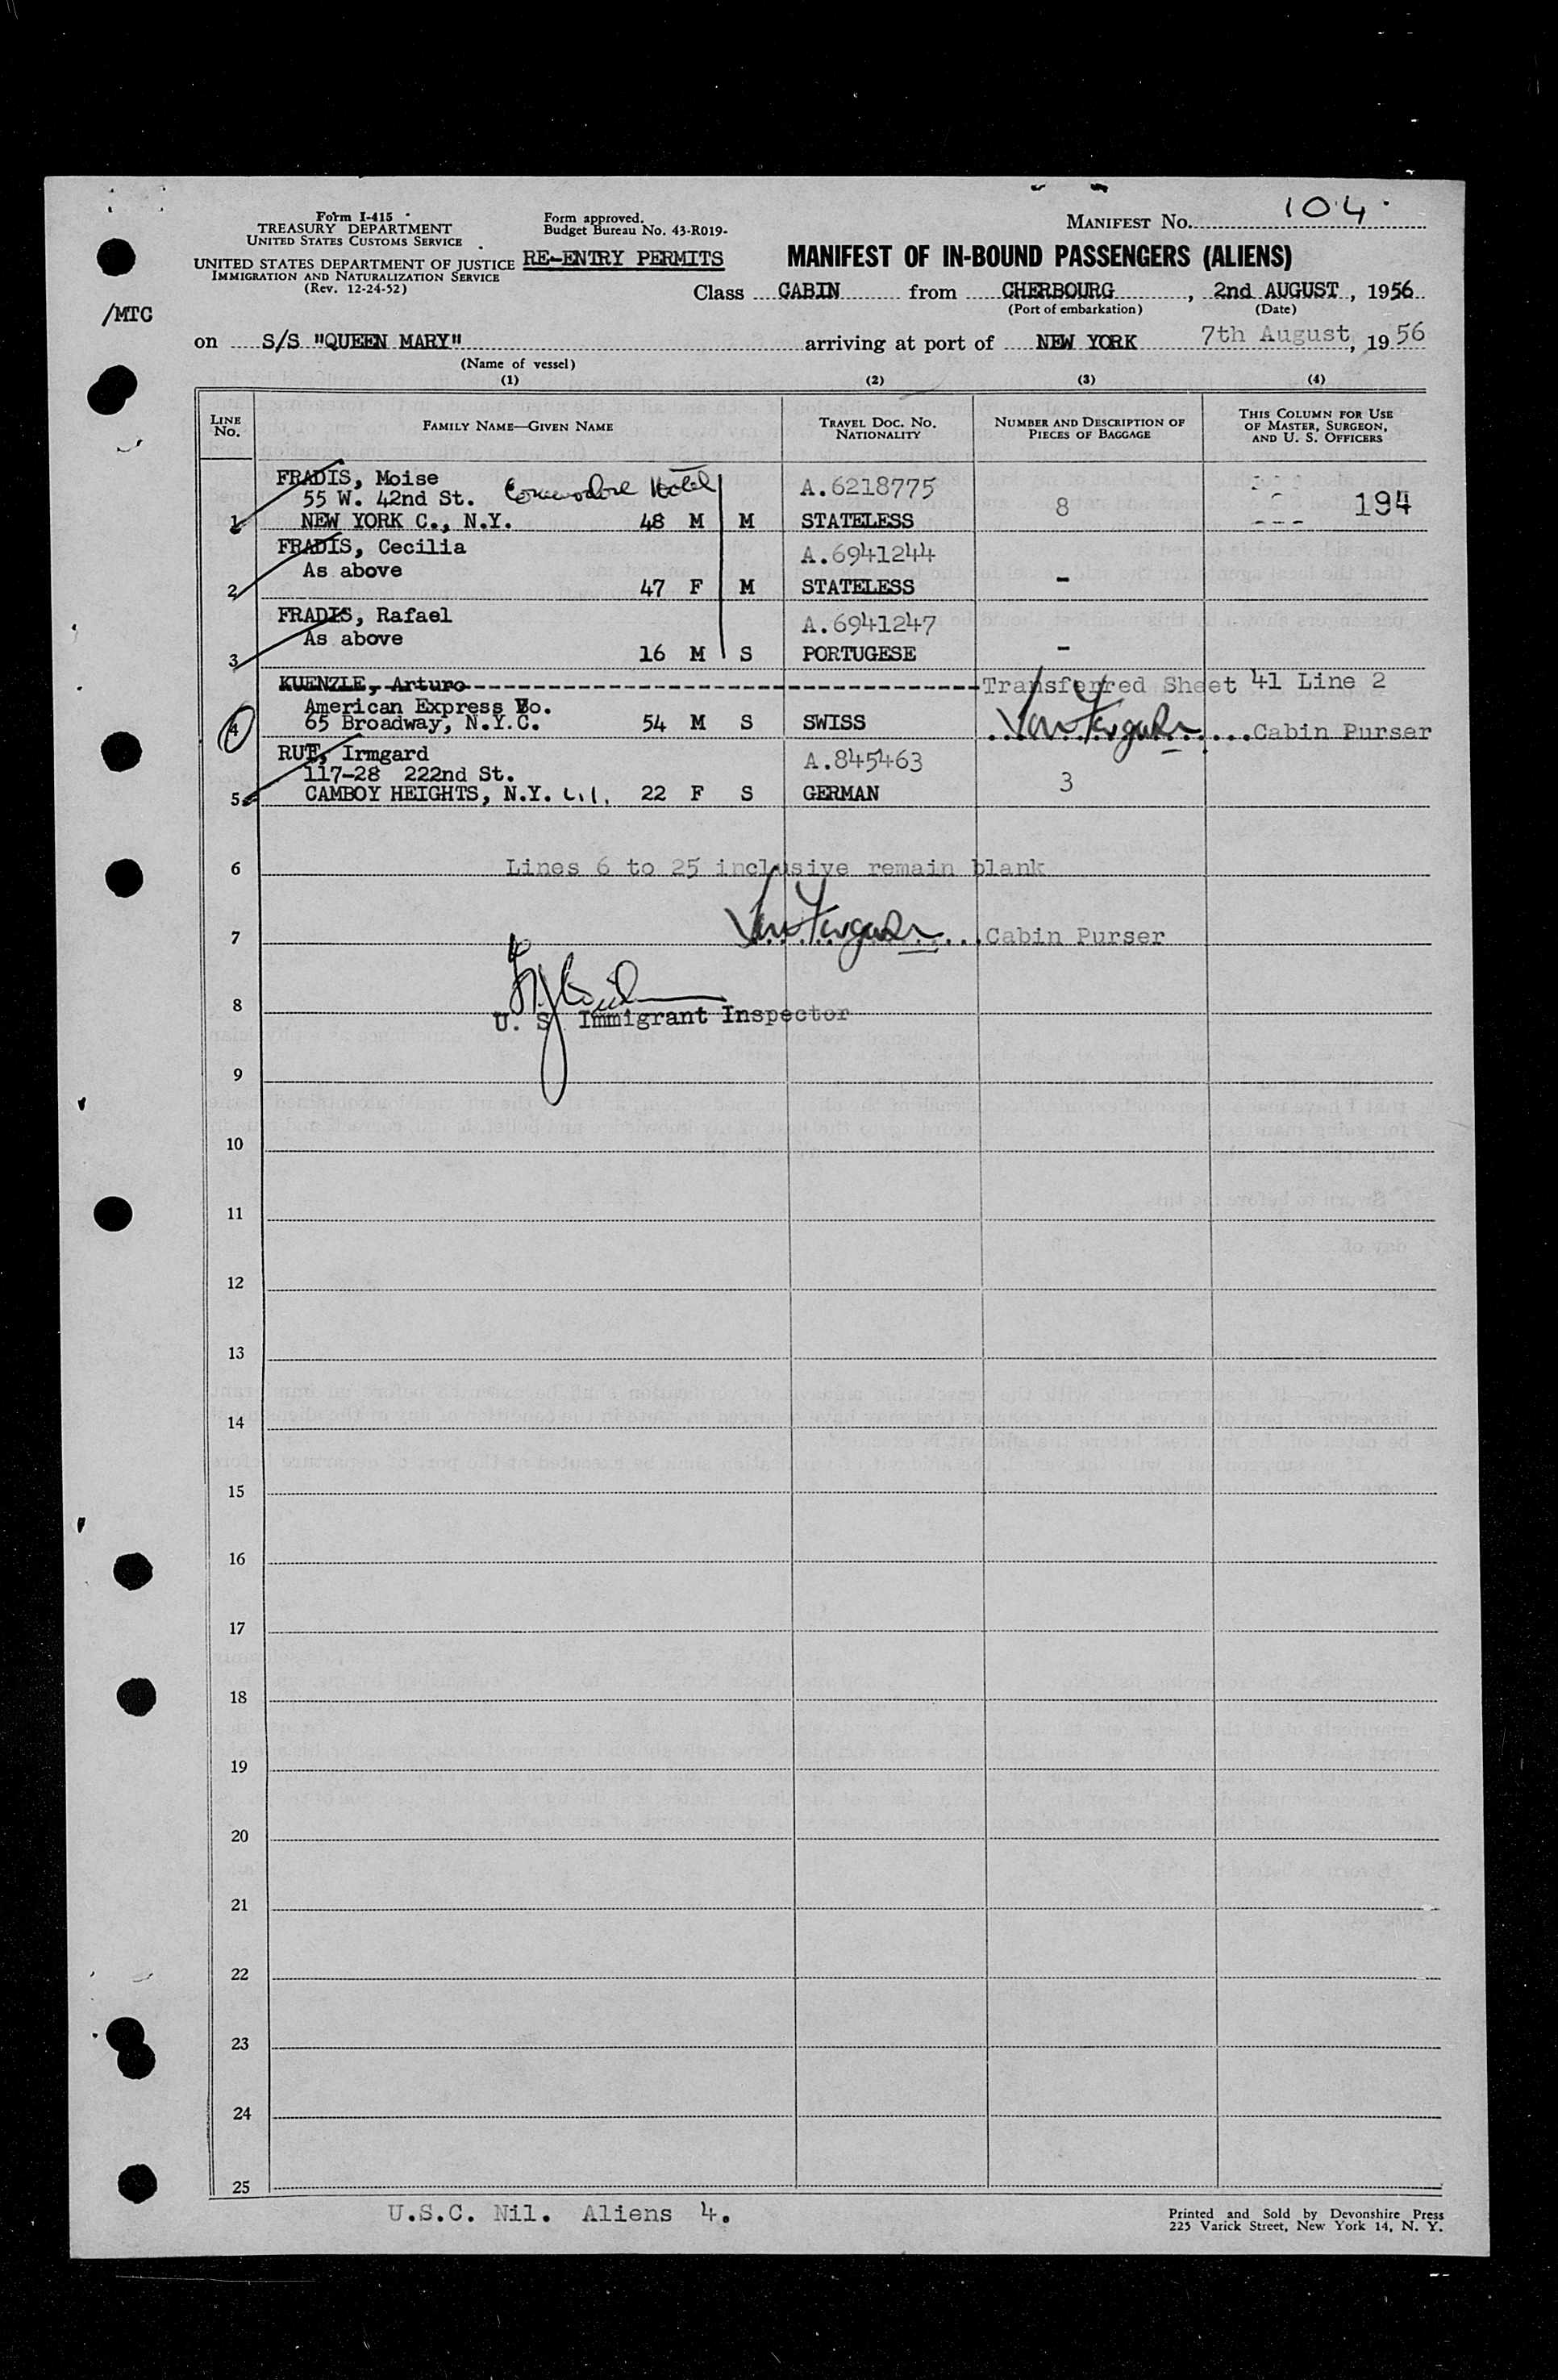 Form I-415
TREASURY DEPARTMENT
UNITED STATES CUSTOMS SERVICE
UNITED STATES DEPARTMENT OF JUSTICE
IMMIGRATION AND NATURALIZATION SERVICE
(Rev. 12-24-52)
Form approved.
Budget Bureau No. 43-R019-
RE-ENTRY PERMITS
MANIFEST NO. 104
MANIFEST OF IN-BOUND PASSENGERS (ALIENS)
/MTC
Class CABIN from CHERBOURG, 2nd AUGUST, 1956
(Port of embarkation) (Date)
on S/S "QUEEN MARY" arriving at port of NEW YORK 7th August, 1956
(Name of vessel)
(1) (2) (3) (4)
LINE NO. FAMILY NAME—GIVEN NAME TRAVEL DOC. NO. NATIONALITY NUMBER AND DESCRIPTION OF PIECES OF BAGGAGE THIS COLUMN FOR USE OF MASTER, SURGEON, AND U. S. OFFICERS
FRADIS, Moise A.6218775
55 W. 42nd St. Commodore Hotel 8 194
1 NEW YORK C., N.Y. 48 M M STATELESS
FRADIS, Cecilia A.6941244
As above
2 47 F M STATELESS -
FRADIS, Rafael A.6941247
As above
3 16 M S PORTUGESE -
KUENZLE, Arturo Transferred Sheet 41 Line 2
American Express Co.
4 65 Broadway, N.Y.C. 54 M S SWISS Cabin Purser
RUF, Irmgard A.845463
117-28 222nd St. 3
5 CAMBOY HEIGHTS, N.Y. L.I. 22 F S GERMAN
6 Lines 6 to 25 inclusive remain blank
7 Cabin Purser
8 U. S. Immigrant Inspector
9
10
11
12
13
14
15
16
17
18
19
20
21
22
23
24
25
U.S.C. Nil. Aliens 4.
Printed and Sold by Devonshire Press
225 Varick Street, New York 14, N. Y.